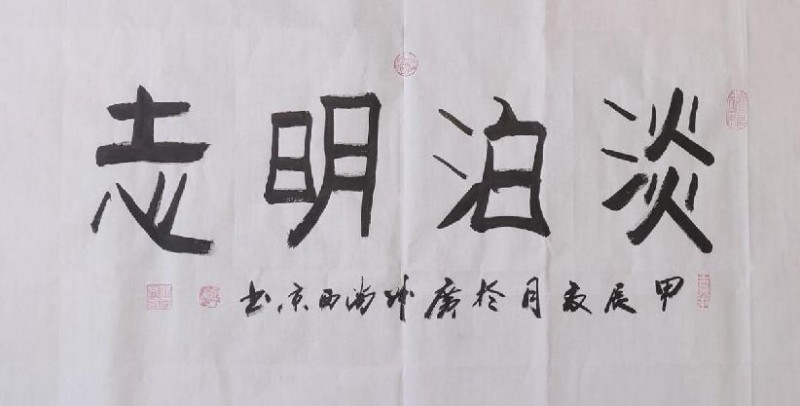 淡泊明志
甲辰夏月於廣州西京書